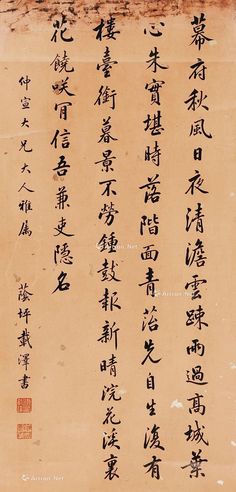 幕府秋風日夜清澹雲踈雨過高城葉
心朱實堪時落階面青苔先自生復有
樓臺銜暮景不勞鍾鼓報新晴浣花溪裏
花饒咲肎信吾兼吏隱名
仲宣大兄大人雅屬
蔭坪載澤書
Artron.Net